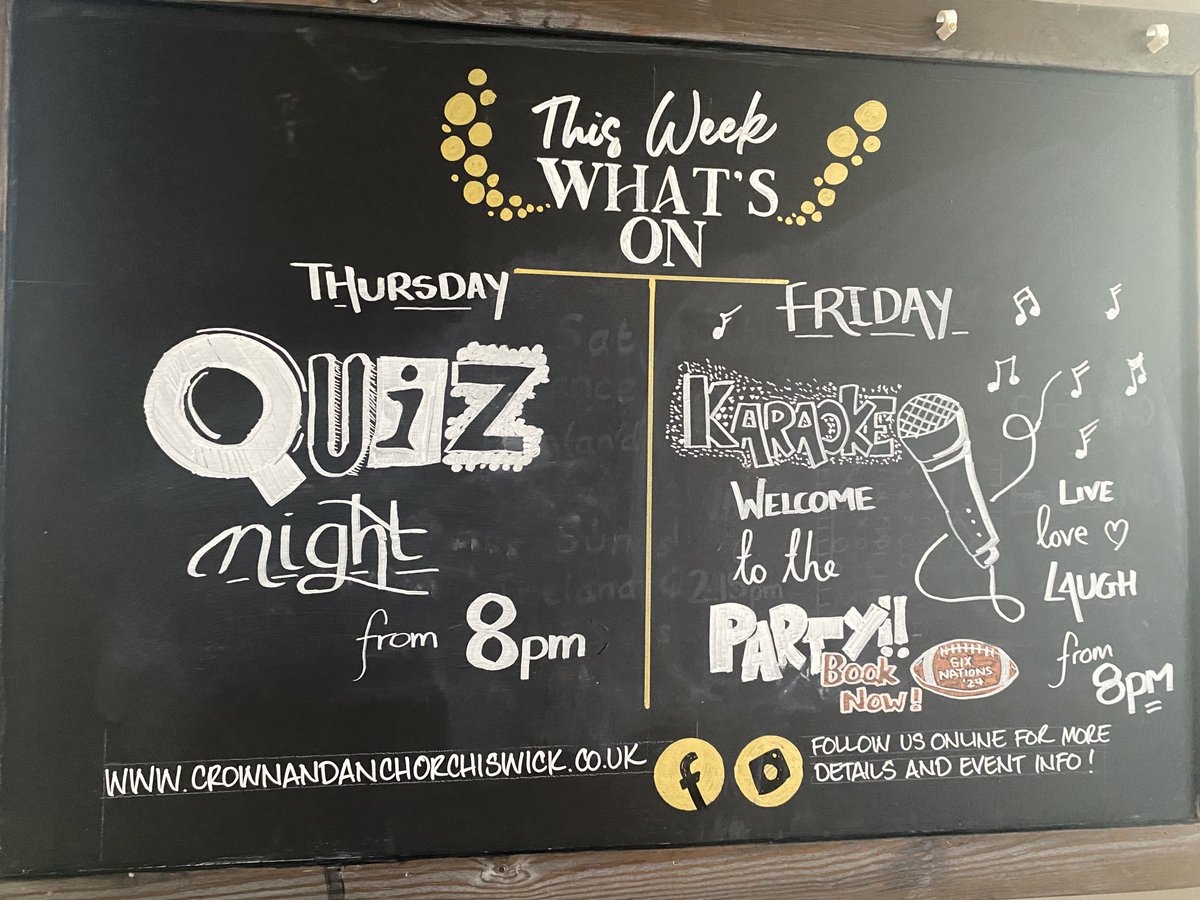 This Week
WHAT'S
ON
THURSDAY
QUiZ
night
from 8pm
FRIDAY
KARAOKE
WELCOME
to the
PARTY!!
BOOK
NOW!
SIX
NATIONS
'24
LIVE
love
LAUGH
from
8PM
WWW.CROWNANDANCHORCHISWICK.CO.UK
FOLLOW US ONLINE FOR MORE
DETAILS AND EVENT INFO!